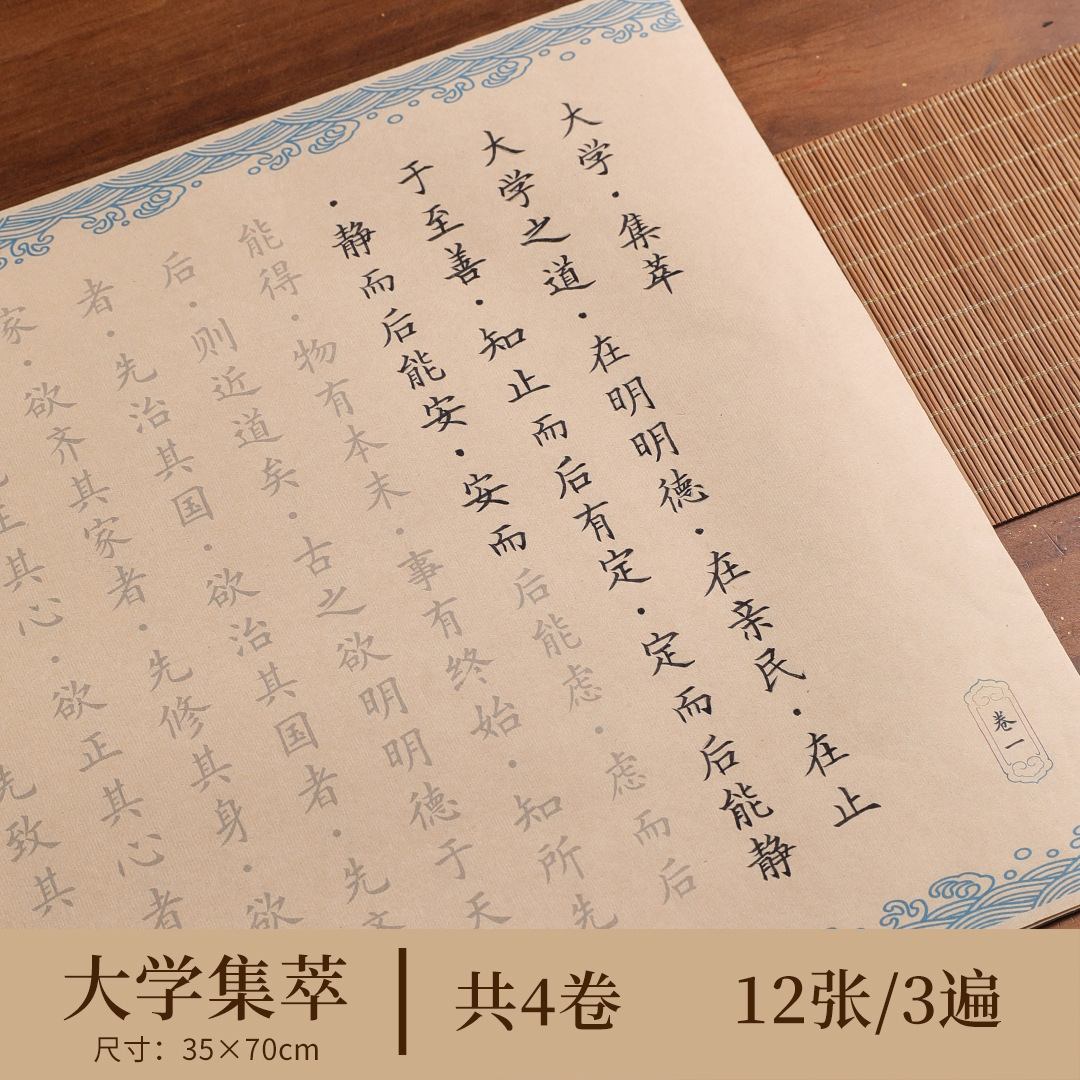 大学·集萃
大学之道·在明明德·在亲民·在止
于至善·知止而后有定·定而后能静
·静而后能安·安而后能虑·虑而后
能得·物有本末·事有终始·知所先
后·则近道矣·古之欲明明德于天
者·先治其国·欲治其国者·先
家·欲齐其家者·先修其身·欲
正其心·欲正其心者
先致其
卷一
大学集萃
尺寸：35×70cm
共4卷
12张/3遍